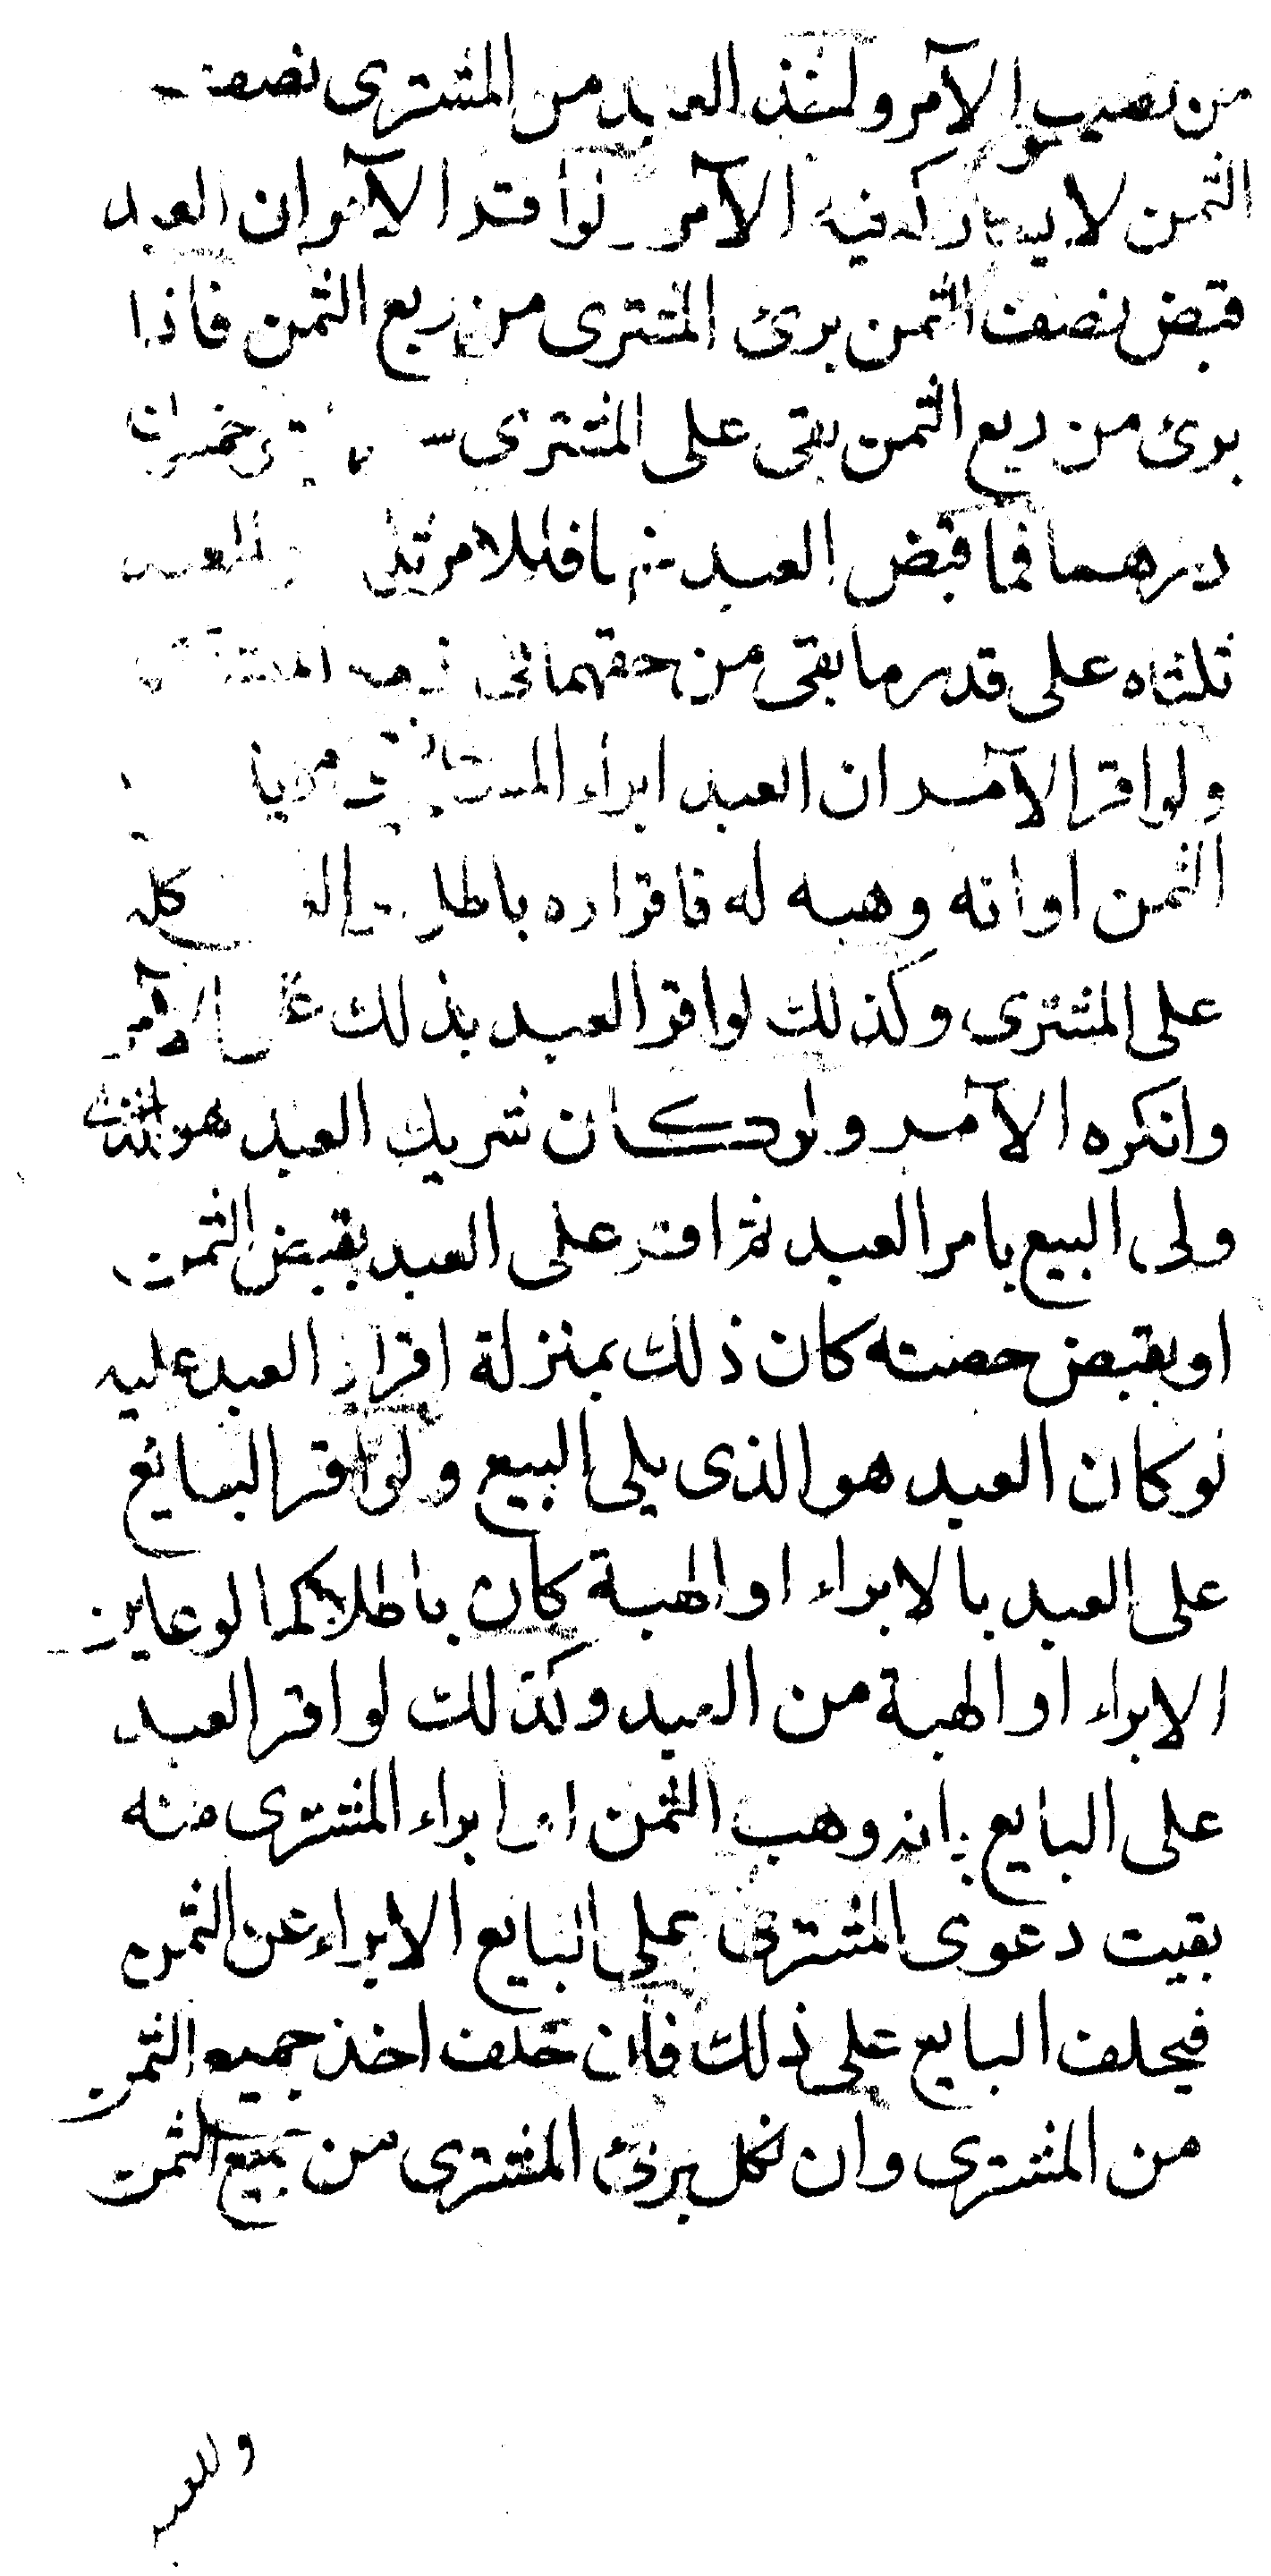 من نصيب الآمر ولياخذ العبد من المشترى نصف
الثمن لا يشاركه فيه الآمر ولو اقر الآمر ان العبد
قبض نصف الثمن برئ المشترى من ربع الثمن فاذا
برئ من ربع الثمن بقى على المشترى خمسون
درهما فما قبض العبد منها فللآمر ثلثه وللعبد
ثلثاه على قدر ما بقى من حقهما فى ذمة المشترى
ولو اقر الآمر ان العبد ابراء المشترى من
الثمن او انه وهبه له فاقراره باطل كله
على المشترى وكذلك لو اقر العبد بذلك على الآمر
وانكره الآمر ولو كان شريك العبد هو الذى
ولى البيع بامر العبد ثم اقر على العبد بقبض الثمن
او بقبض حصته كان ذلك بمنزلة اقرار العبد عليه
لو كان العبد هو الذى يلى البيع ولو اقر البايع
على العبد بالابراء او الهبة كان باطلا كما لو عاين
الابراء او الهبة من العبد وكذلك لو اقر العبد
على البايع بانه وهب الثمن او ابراء المشترى منه
بقيت دعوى المشترى على البايع الابراء عن الثمن
فيحلف البايع على ذلك فان حلف اخذ جميع الثمن
من المشترى وان نكل برئ المشترى من جميع الثمن
وللعبد